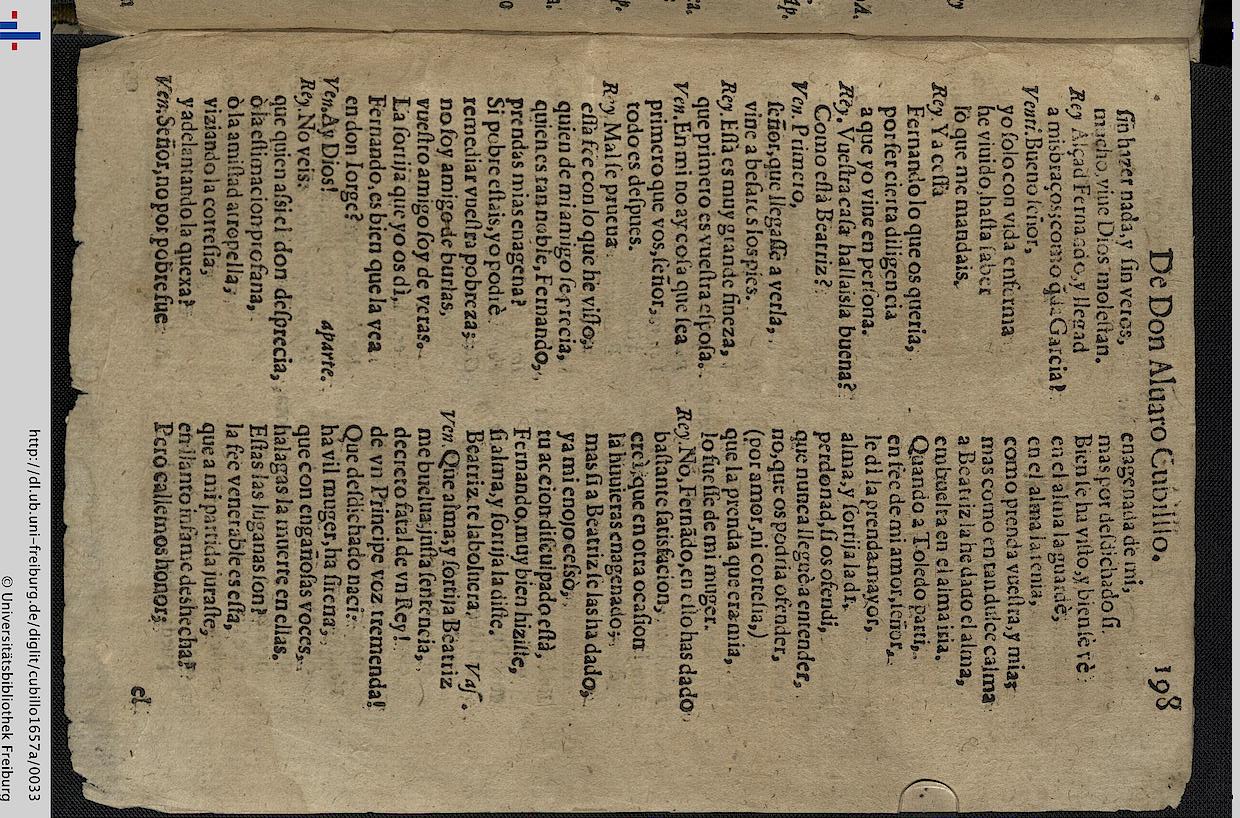 De Don Aluaro Cubillo. 198
sin hazer nada, y sin veros,
mucho, viue Dios molestan.
Rey Alçad Fernando, y llegad
a mis braços; como q̃da Garcia?
Ven. Bueno señor,
yo solo con vida enferma
he viuido, hasta saber
lo que me mandais.
Rey Ya cessa
Fernando lo que os queria,
por ser cierta diligencia
a que yo vine en persona.
Rey, Vuestra casa hallaisla buena?
Como està Beatriz?
Ven. Primero,
señor, que llegasse a verla,
vine a besaros los pies.
Rey. Essa es muy grande fineza,
que primero es vuestra esposa.
Ven. En mi no ay cosa que sea
primero que vos, señor,
todo es despues.
Rey Mal se prueua
essa fee con lo que he visto,
quien de mi amigo se precia,
quien es tan noble, Fernando,
prendas mias enagena?
Si pobre estais, yo podrè
remediar vuestra pobreza;
no soy amigo de burlas,
vuestro amigo soy de veras.
La sortija que yo os di,
Fernando, es bien que la vea
en don Iorge?
Ven. Ay Dios! aparte.
Rey. No veis
que quien assi el don desprecia,
ò la estimacion profana,
ò la amistad atropella,
viziando la cortesia,
y adelantando la quexa?
Ven. Señor, no por pobre fue
enagenada de mi,
mas por desdichado si
Bien se ha visto, y bien se vè
en el alma la guardè,
en el alma la tenia,
como prenda vuestra, y mia;
mas como en tan dulce calma
a Beatriz la he dado el alma,
embuelta en el alma iria.
Quando a Toledo parti,
en fee de mi amor, señor,
le di la prenda mayor,
alma, y sortija la di,
perdonad, si os ofendi,
que nunca lleguè a entender,
no, que os podria ofender,
(por amor, ni cortesia,)
que la prenda que era mia,
lo fuesse de mi muger.
Rey. No, Fernãdo, en esso has dado
bastante satisfacion,
crei, que en otra ocasion
la huuieras enagenado;
mas si a Beatriz se las ha dado,
ya mi enojo cessò,
tu accion disculpado està,
Fernando, muy bien hiziste,
si alma, y sortija la diste.
Beatriz te la boluera. Vas.
Ven Que alma, y sortija Beatriz
me buelua, justa sentencia,
decreto fatal de vn Rey!
de vn Principe voz tremenda!
Que desdichado naci!
ha vil muger, ha sirena,
que con engañosas voces,
halagas la muerte en ellas.
Estas las luganas son?
la fee venerable es essa,
que a mi partida juraste,
en llanto infame deshecha?
Pero callemos honor,
el
http://dl.ub.uni-freiburg.de/diglit/cubillo1657a/0033
© Universitätsbibliothek Freiburg